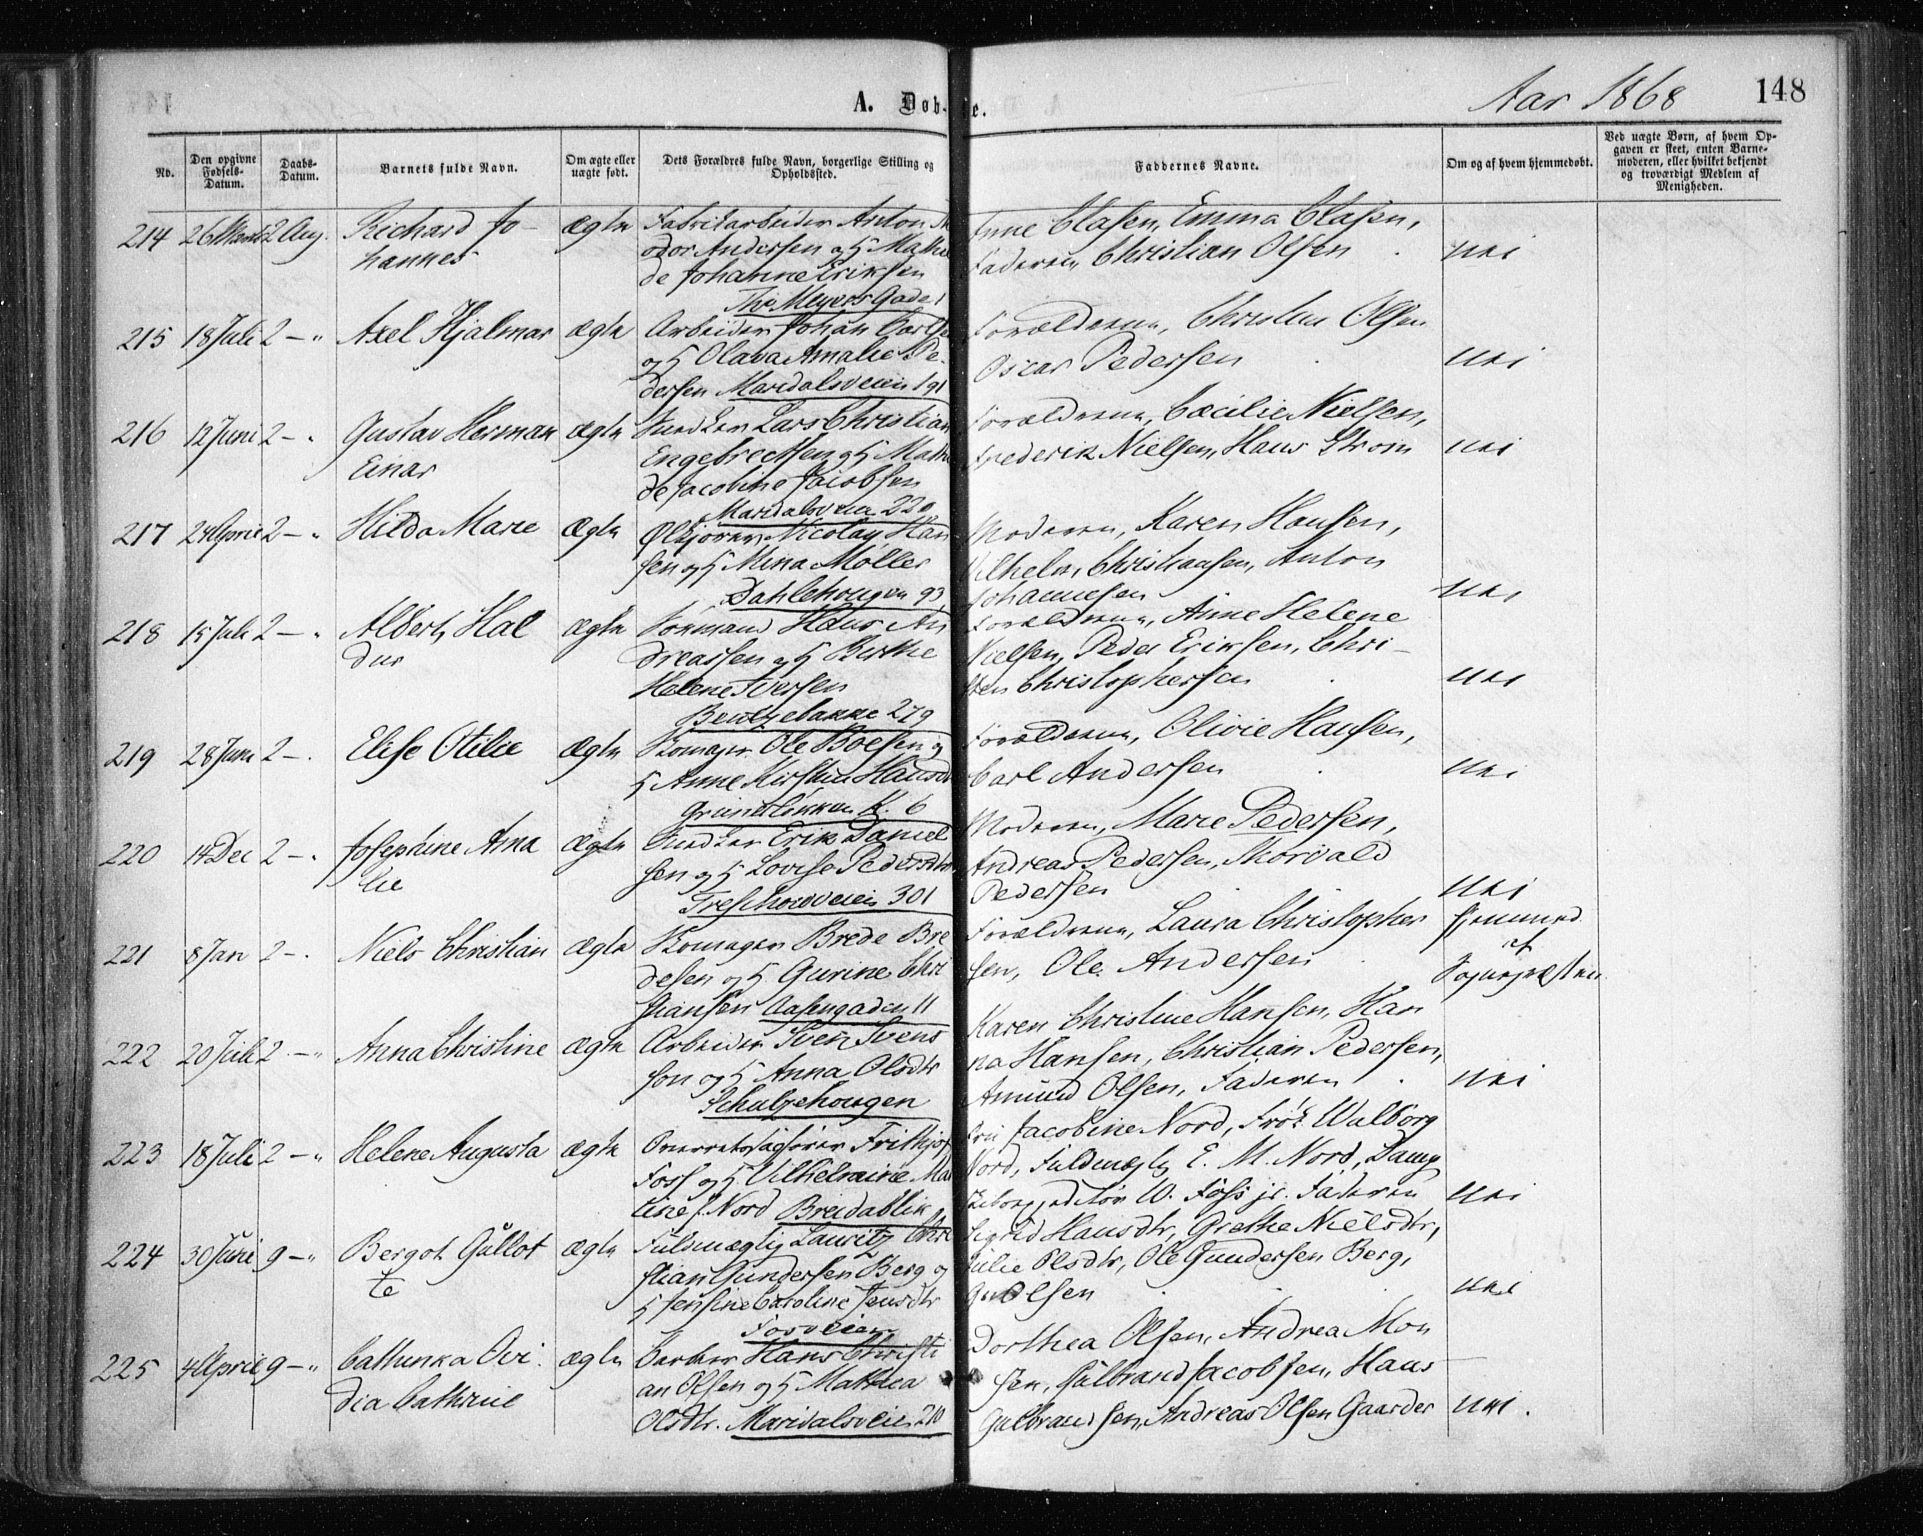 A. Døb-te.
Aar 1868
148
No.
Den opgivne Fødsels-Datum.
Daabs-Datum.
Barnets fulde Navn.
Om ægte eller uægte født.
Dets Forældres fulde Navn, borgerlige Stilling og Opholdssted.
Faddernes Navne.
Om og af hvem hjemmedøbt.
Ved uægte Børn, af hvem Op-
gaven er skeet, enten Barne-
moderen, eller hvilket bekjendt
og troværdigt Medlem af
Menigheden.
214 26 Marts 2 Aug. Richard Jo- ægte Fabrikarbeider Anton Clasen, Emma Clasen,
hannes odor Andersen og H Mathil Faderen, Christian Olsen nei
de Johanne Eriksen
Thv Meyers Gade 1
215 18 Juli 2 — " Axel Hjalmar ægte Arbeider Johan Forældrene, Olsen
og H Olava Amalie Pe- Oscar Pedersen nei
dersen Maridalsveien 191
216 12 Juni 2 — " Gustav Herman ægte Snedker Lars Christian Forældrene, Cæcilie Nielsen,
Einar Engebrethsen og H Frederik Nielsen, Hans Strøm nei
de Jacobine Jacobsen
Maridalsveien 229
217 24 April 2 — " Hilda Marie ægte Nicolay Han Moderen, Karen Hansen,
sen og H Mina Møller Vilhelm Christiansen, Anton
Dahlehougen 93 Johannesen nei
218 15 Juli 2 — " Albert Hal ægte Formand Hans An Forældrene, Anne Helene
dur dreassen og H Birthe Nielsen, Peder Eriksen, Chri-
Helene Iversen sten Christophersen nei
Bentzebakke 279
219 28 Juni 2 — " Elise Otilie ægte Skomager Ole Boesen og Forældrene, Olivie Hansen,
H Anne Kirstine Hansdtr Carl Andersen nei
Grünerløkken K. 6
220 14 Dec 2 — " Josephine Ama ægte Snedker Erik Daniel Moderen, Marie Pedersen,
lie sen og H Lovise Pedersdtr Andreas Pedersen, Thorvald
Treschowsveien 301 Pedersen nei
221 8 Jan 2 — " Niels Christian ægte Skomager Brede Bre Forældrene, Laura Christopher hjemmed
desen og H Gurine Chri sen, Ole Andersen af
stiansen Aasengaden 11 Sognepræsten
222 20 Juli 2 — " Anna Christine ægte Arbeider Sven Svens Karen Christine Hansen, Han
son og H Anna Olsdtr na Hansen, Christian Pedersen,
Schultzehougen Amund Olsen, Faderen nei
223 18 Juli 2 — " Helene Augusta ægte Overretssagfører Frithjof Fru Jacobine Nord, Frøk Walborg
Foss og H Vilhelmine Mar Nord, Fuldmægtig E. M. Nord, Damp
tine f. Nord Breidablik W. Foss jr. Faderen nei
224 30 Juni 9 — " Bergot Gullot ægte Fuldmægtig Lauritz Chri Sigrid Hansdtr, Grethe Nielsdtr,
te stian Gundersen Berg og Julie Olsdtr, Ole Gundersen Berg,
H Jensine Caroline Jensdtr Olsen nei
225 4 April 9 — " Cathinka Ovi ægte Hans Christi Dorthea Olsen, Andrea Mon
dia Cathrine an Olsen og H Mathea sen, Gulbrand Jacobsen, Hans
Olsdtr. Maridalsveien 210 Gulbrandsen, Andreas Olsen Gaarder nei.